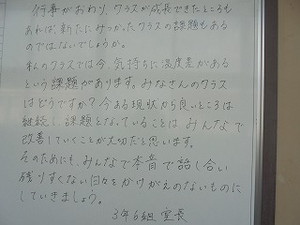 行事がおわり、クラスが成長できたところも
あれば、新たにみつかったクラスの課題もある
のではないでしょうか。
私のクラスでは今、気持ちに温度差がある
という課題があります。みなさんのクラス
はどうですか？今ある現状から良いところは
継続し、課題となっていることは みんなで
改善していくことが大切だと思います。
そのためにも、みんなで本音で話し合い
残り少ない日々をかけがえのないものに
していきましょう。
3年6組 室長